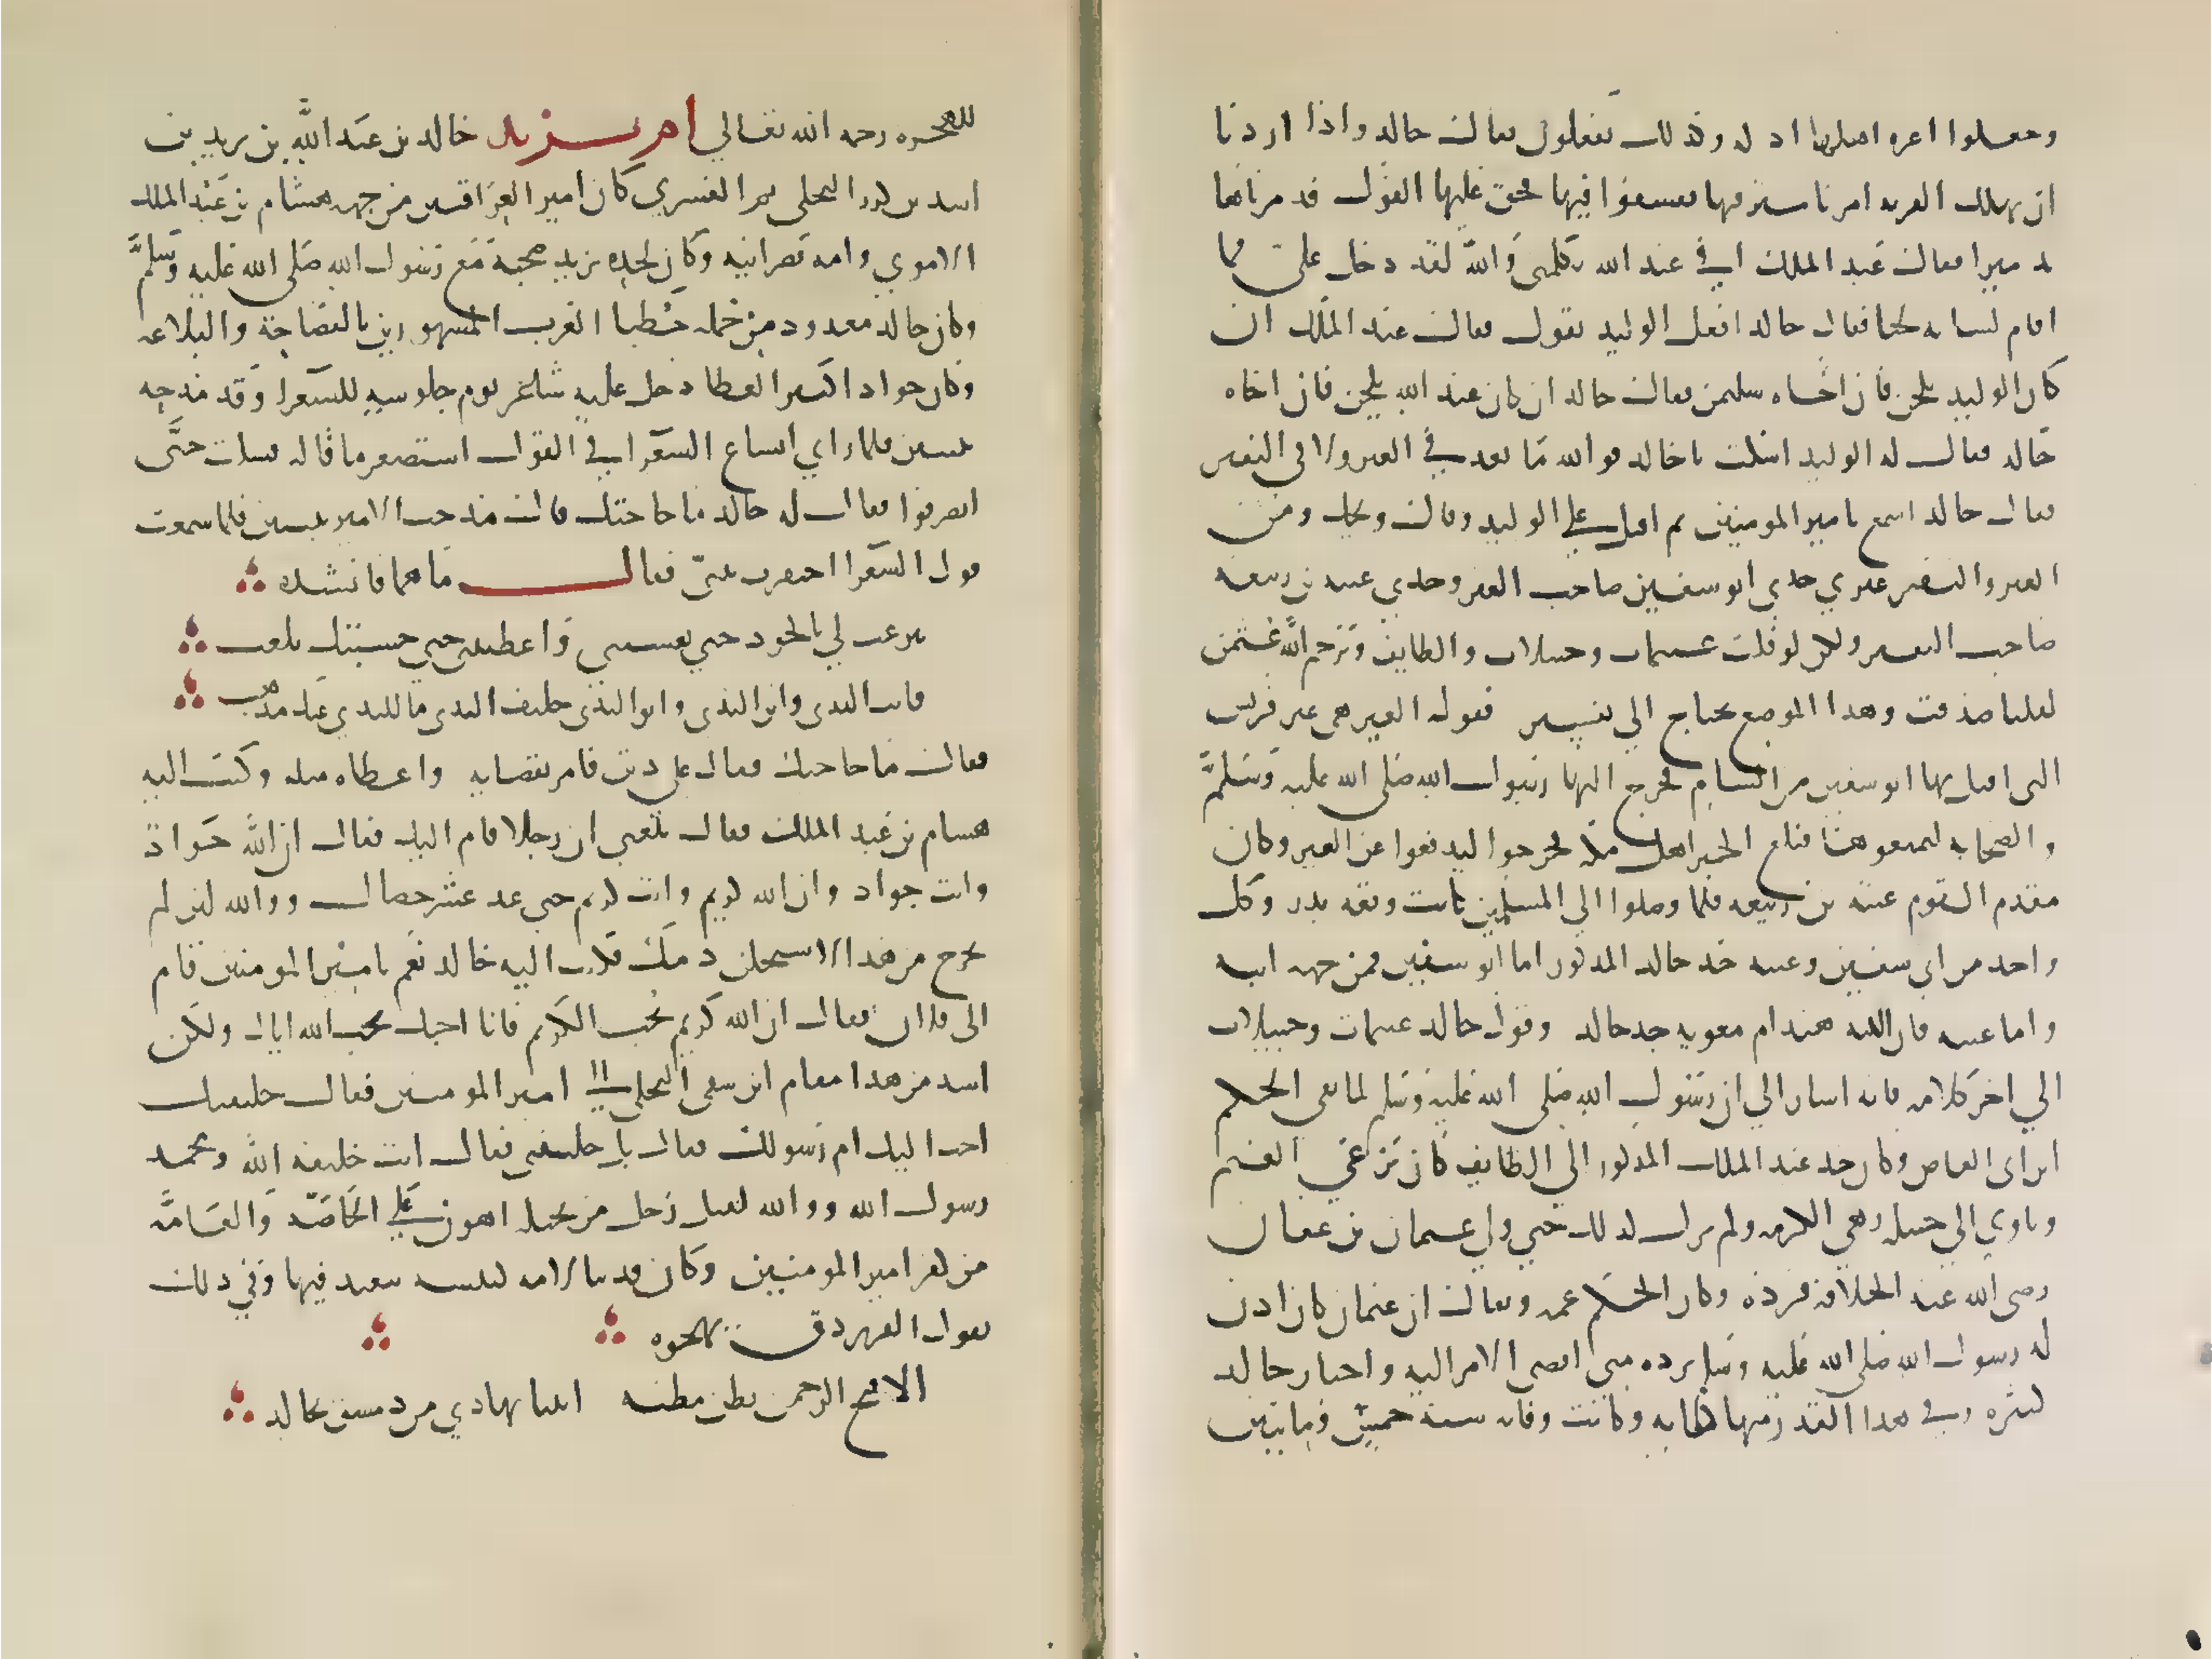 وجعلوا اعزه اهلها اذله وكذلك يفعلون فقال خالد واذا اردنا
ان نهلك القريه امرنا مترفيها ففسقوا فيها فحق عليها القول فدمرناها
تدميرا فقال عبد الملك افي عبد الله تكلمني والله لقد دخل علي فما
اقام لسانه لحنا فقال خالد افعلي الوليد تقول فقال عبد الملك ان
كان الوليد يلحن فان اخاه سليمن فقال خالد ان كان عبد الله يلحن فان اخاه
خالد فقال له الوليد اسكت يا خالد فو الله ما تعد في العير ولا في النفير
فقال خالد اسمع يا امير المومنين ثم اقبل على الوليد وقال ويحك ومن
العير والنفير غيري جدي ابو سفين صاحب العير وجدي عتبه بن ربيعه
صاحب النفير ولكن لو قلت غنيمات وحبيلات والطايف ورحم الله عثمن
لقلنا صدقت وهذا الموضع يحتاج الي تفسير فقوله العير هي عير قريش
التي اقبل بها ابو سفين من الشام فخرج اليها رسول الله صلى الله عليه وسلم
والصحابه ليغنموها فبلغ الخبر اهل مكه فخرجوا ليدفعوا عن العير وكان
مقدم القوم عتبه بن ربيعه فلما وصلوا الي المسلمين كانت وقعه بدر وكل
واحد من ابي سفين وعتبه جد خالد المذكور اما ابو سفين فمن جهه ابيه
واما عتبه فان ابنته هند ام معويه جد خالد وقول خالد غنيمات وحبيلات
الي اخر كلامه فانه اشار الي ان رسول الله صلى الله عليه وسلم لما نفى الحكم
ابن ابي العاص وكان جد عبد الملك المذكور الي الطايف كان يرعي الغنم
وياوي الي حبيله وهي الكرمه ولم يزل كذلك حتي ولي عثمان بن عفان
رضى الله عنه الخلافه فرده وكان الحكم عمه ويقال ان عثمان كان اذن
له رسول الله صلى الله عليه وسلم برده متى افضى الامر اليه واخبار خالد
كثيره وفي هذا القدر منها كفايه وكانت وفاته سنة خمس وثمانين
للهجره رحمه الله تعالي ابو يزيد خالد بن عبد الله بن يزيد بن
اسد بن كرز البجلي ثم القسري كان امير العراقين من جهه هشام بن عبد الملك
الاموي وامه نصرانيه وكان لجده يزيد صحبة مع رسول الله صلى الله عليه وسلم
وكان خالد معدود من جمله خطبا العرب المشهورين بالفصاحة والبلاغه
وكان جوادا كثير العطا دخل عليه شاعر يوم جلوسه للشعرا وقد مدحه
ببيتين فلما راي اتساع الشعرا في القول استصغر ما قاله فسكت حتى
انصرفوا فقال له خالد ما حاجتك قال مدحت الامير ببيتين فلما سمعت
قول الشعرا احتقرت بيتي فقال ما هما فانشده
تبرعت لي بالجود حتي نعشتني واعطيتني حتي حسبتك تلعب
فانت الندى وابن الندى وابو الندى حليف الندى ما للندي عنك مذهب
فقال ما حاجتك فقال علي دين فامر بقضايه واعطاه مثله وكتب اليه
هشام بن عبد الملك فقال بلغني ان رجلا قام اليك فقال ان الله جواد
وانت جواد وان الله كريم وانت كريم حتي عد عشر خصال ووالله لين لم
تخرج من هذا لاستحلن دمك فكتب اليه خالد نعم يا امير المومنين قام
الى فلان فقال ان الله كريم يحب الكريم فانا احبك بحب الله اياك ولكن
اشد من هذا مقام ابن شقي البجلي الى امير المومنين فقال خليفتك
احب اليك ام رسولك فقال بل خليفتي فقال انت خليفه الله ومحمد
رسول الله ووالله لقتل رجل من بجيله اهون على الخاصة والعامه
من كفر امير المومنين وكان قد بنا لامه كنيسه تتعبد فيها وفي ذلك
يقول الفرزدق يهجوه
الا قبح الرحمن ظهر مطيه اتتنا تهادي من دمشق بخالد